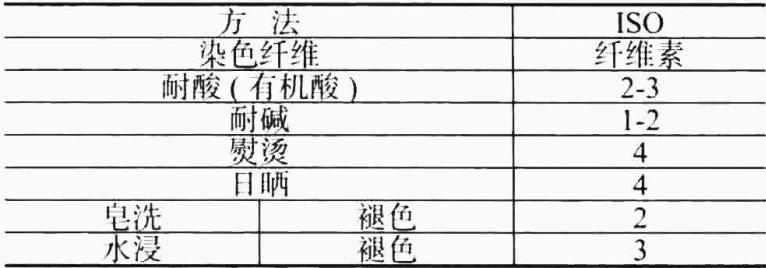 方 法 ISO
染色纤维 纤维素
耐酸(有机酸) 2-3
耐碱 1-2
熨烫 4
日晒 4
皂洗 褪色 2
水浸 褪色 3